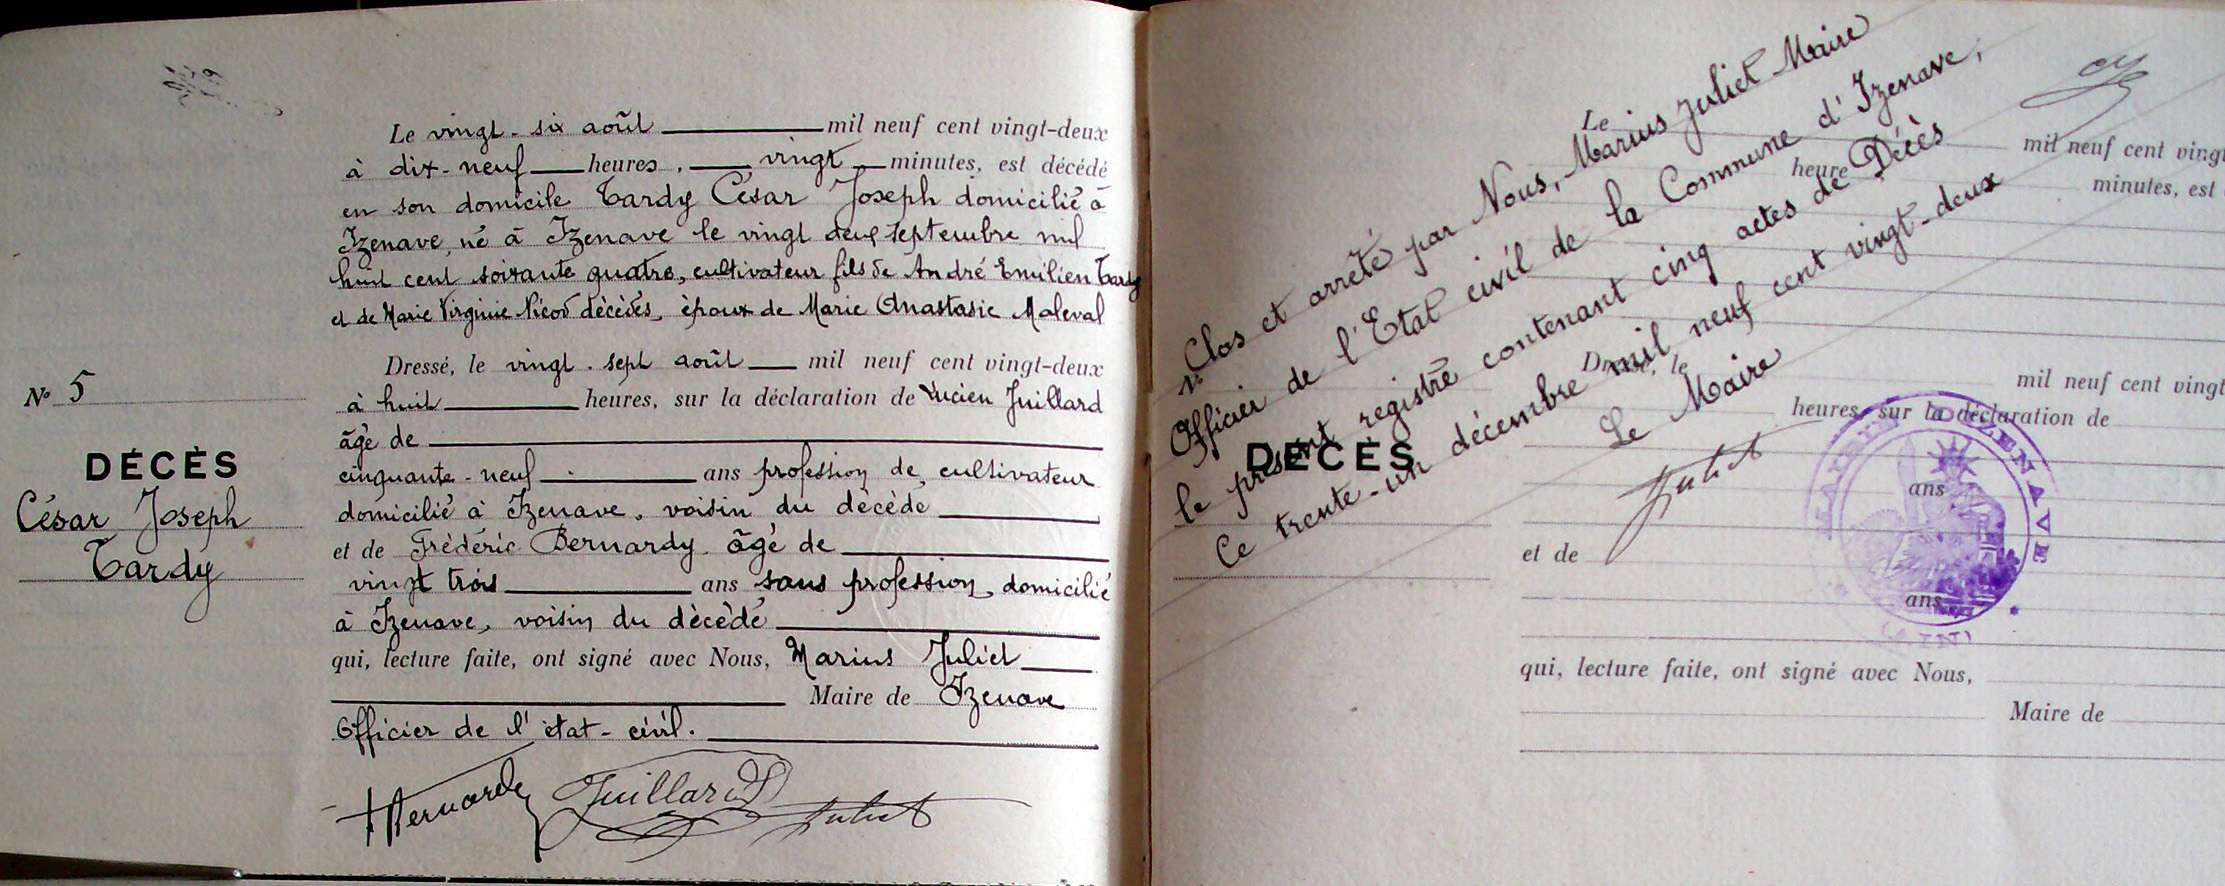 Le vingt-six août mil neuf cent vingt-deux
à dix-neuf heures, vingt minutes, est décédé
en son domicile Tardy César Joseph domicilié à
Izenave, né à Izenave le vingt deux septembre mil
huit cent soixante quatre, cultivateur fils de André Emilien Tardy
et de Marie Virginie Nicod décèdés, époux de Marie Anastasie Maleval
Dressé, le vingt-sept août mil neuf cent vingt-deux
à huit heures, sur la déclaration de Lucien Juillard
âgé de
cinquante-neuf ans profession de cultivateur
domicilié à Izenave, voisin du décèdé
et de Frédéric Bernardy âgé de
vingt trois ans sans profession, domicilié
à Izenave, voisin du décèdé
qui, lecture faite, ont signé avec Nous, Marius Juliet
Maire de Izenave
Officier de l'état-civil.
Bernardy Juillard Juliet
No 5
DÉCÈS
César Joseph
Tardy
Clos et arrêté par Nous, Marius Juliet Maire
Officier de l'Etat civil de la Commune d'Izenave,
le présent registre contenant cinq actes de Décès
Ce trente-un décembre mil neuf cent vingt-deux
Le Maire
Juliet
DÉCÈS
Le mil neuf cent vingt
heure minutes, est
Dressé, le mil neuf cent vingt
heures, sur la déclaration de
ans
et de
ans
qui, lecture faite, ont signé avec Nous,
Maire de
MAIRIE D'IZENAVE
(AIN)